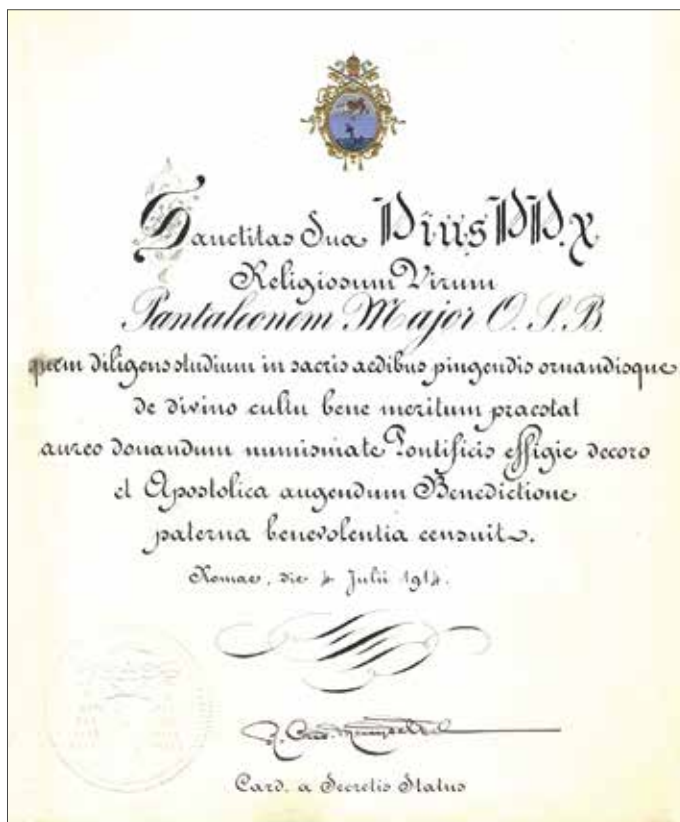 Sanctitas Sua Pius PP. X
Religiosum Virum
Pantaleonem Major O. S. B.
quem diligens studium in sacris aedibus pingendis ornandisque
de divino cultu bene meritum praestat
aureo donandum numismate Pontificis effigie decoro
et Apostolica augendum Benedictione
paterna benevolentia censuit.
Romae, die 4 Julii 1914.
R. Card. Merry del Val
Card. a Secretis Status